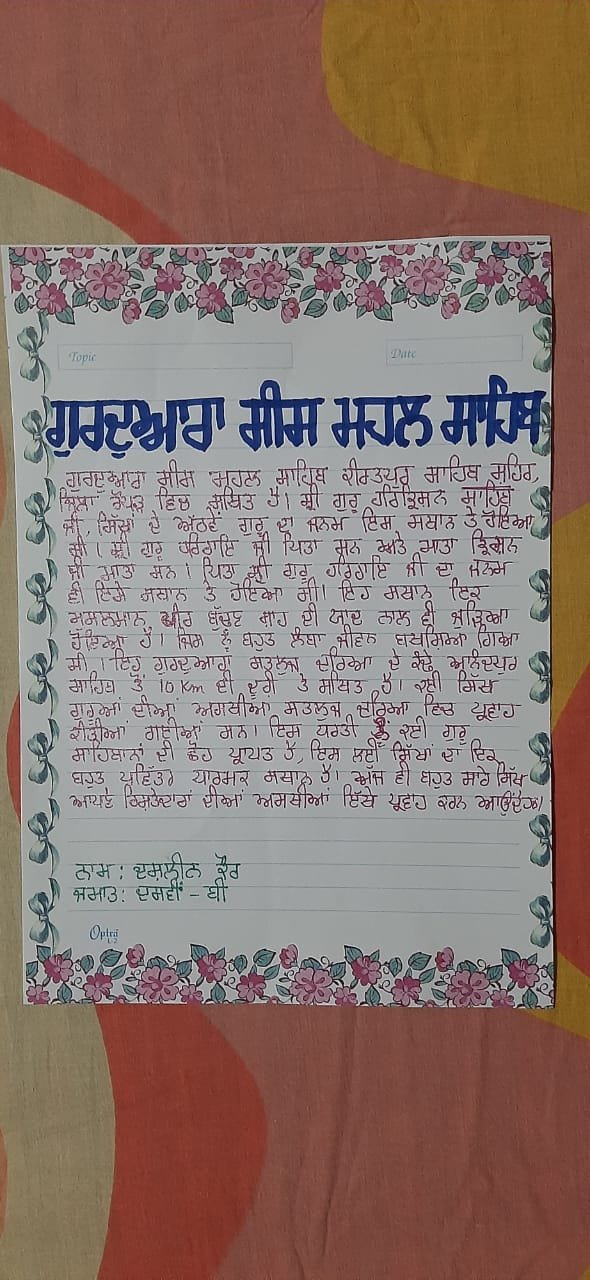 Topic
Date
ਗੁਰਦੁਆਰਾ ਸੀਸ ਮਹਲ ਸਾਹਿਬ
ਗੁਰਦੁਆਰਾ ਸੀਸ ਮਹਲ ਸਾਹਿਬ ਕੀਰਤਪੁਰ ਸਾਹਿਬ ਸ਼ਹਿਰ,
ਜ਼ਿਲਾ ਰੋਪੜ ਵਿਚ ਸਥਿਤ ਹੈ। ਸ਼੍ਰੀ ਗੁਰੂ ਹਰਿਕ੍ਰਿਸ਼ਨ ਸਾਹਿਬ
ਜੀ, ਸਿੱਖਾਂ ਦੇ ਅੱਠਵੇਂ ਗੁਰੂ ਦਾ ਜਨਮ ਇਸ ਸਥਾਨ ਤੇ ਹੋਇਆ
ਸੀ। ਸ਼੍ਰੀ ਗੁਰੂ ਹਰਿਰਾਇ ਜੀ ਪਿਤਾ ਸਨ ਅਤੇ ਮਾਤਾ ਕ੍ਰਿਸ਼ਨ
ਜੀ ਮਾਤਾ ਸਨ। ਪਿਤਾ ਸ਼੍ਰੀ ਗੁਰੂ ਹਰਿਰਾਇ ਜੀ ਦਾ ਜਨਮ
ਵੀ ਇਸੇ ਸਥਾਨ ਤੇ ਹੋਇਆ ਸੀ। ਇਹ ਸਥਾਨ ਇਕ
ਮੁਸਲਮਾਨ ਪੀਰ ਬੁੱਢਣ ਸ਼ਾਹ ਦੀ ਯਾਦ ਨਾਲ ਵੀ ਜੁੜਿਆ
ਹੋਇਆ ਹੈ। ਜਿਸ ਨੂੰ ਬਹੁਤ ਲੰਬਾ ਜੀਵਨ ਬਖਸ਼ਿਆ ਗਿਆ
ਸੀ। ਇਹ ਗੁਰਦੁਆਰਾ ਸਤਲੁਜ ਦਰਿਆ ਦੇ ਕੰਢੇ ਆਨੰਦਪੁਰ
ਸਾਹਿਬ ਤੋਂ 10 Km ਦੀ ਦੂਰੀ ਤੇ ਸਥਿਤ ਹੈ। ਕਈ ਸਿੱਖ
ਗੁਰੂਆਂ ਦੀਆਂ ਅਸਥੀਆਂ ਸਤਲੁਜ ਦਰਿਆ ਵਿਚ ਪ੍ਰਵਾਹ
ਕੀਤੀਆਂ ਗਈਆਂ ਸਨ। ਇਸ ਧਰਤੀ ਨੂੰ ਕਈ ਗੁਰੂ
ਸਾਹਿਬਾਨਾਂ ਦੀ ਛੋਹ ਪ੍ਰਾਪਤ ਹੈ, ਇਸ ਲਈ ਸਿੱਖਾਂ ਦਾ ਇਕ
ਬਹੁਤ ਪਵਿੱਤਰ ਧਾਰਮਕ ਸਥਾਨ ਹੈ। ਅੱਜ ਵੀ ਬਹੁਤ ਸਾਰੇ ਸਿੱਖ
ਆਪਣੇ ਰਿਸ਼ਤੇਦਾਰਾਂ ਦੀਆਂ ਅਸਥੀਆਂ ਇੱਥੇ ਪ੍ਰਵਾਹ ਕਰਨ ਆਉਂਦੇ ਹਨ।
ਨਾਮ : ਦਸ਼ਲੀਨ ਕੌਰ
ਜਮਾਤ: ਦਸਵੀਂ - ਬੀ
Optra